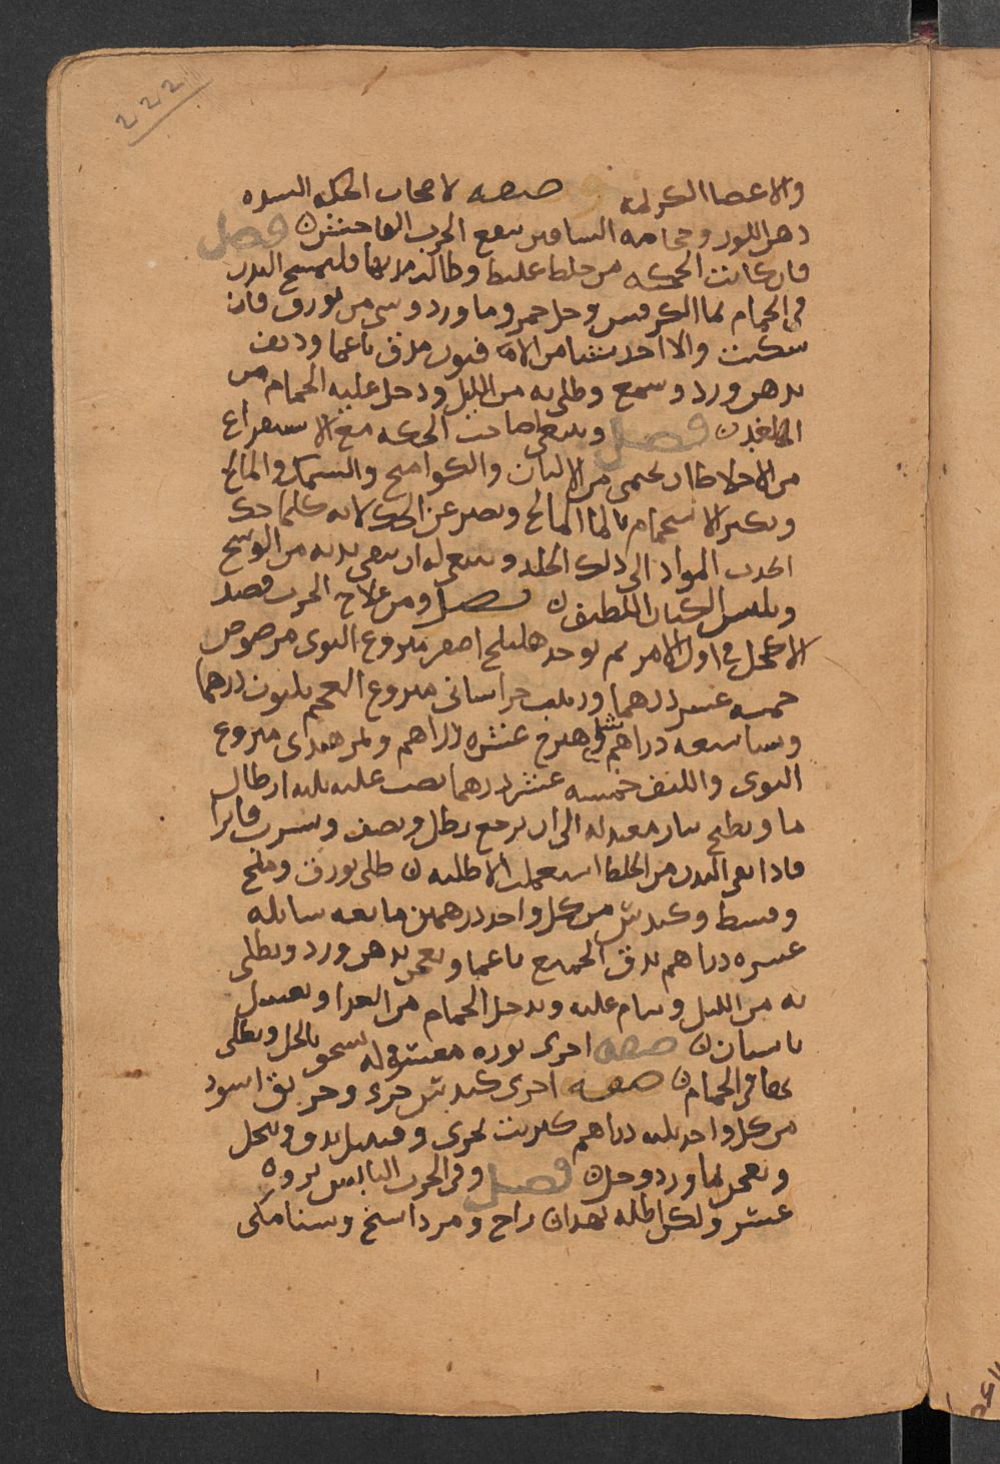 222
والاعضا الكريمة صفه لاصحاب الحكه السده
دهن اللوز وحجامه الساقين ينفع الجرب الفاحش فصل
فان كانت الحكه من خلط غليظ وطالت مدتها فليمسح البدن
في الحمام بما الكرفس وخل خمر وماورد وشي من بورق فان
سكنت والا اخذ شيا من الافيون مدق ناعما وديف
بدهن ورد وسمع وطلي به من الليل ودخل عليه الحمام من
الغد فصل وينبغي لصاحب الحكه مع الاستفراغ
من الاخلاط ان يحتمى من الالبان والكواميخ والسمك والمالح
ويكثر الاستحمام بالما المالح ويصبر عن الحك لانه كلما حك
انجذب المواد الى ذلك الجلد وينبغي له ان ينقي بدنه من الوسخ
ويلبس الكتان اللطيف فصل ومن علاج الجرب فصد
الاكحل في اول الامر ثم يوخذ هليلج اصفر منزوع النوى مرضوض
خمسه عشر درهما وزبيب خراساني منزوع العجم ثلثون درهما
وسنا سبعه دراهم شاهترج عشره دراهم وتمر هندى منزوع
النوى والليف خمسه عشر درهما يصب عليه ثلثه ارطال
ما ويطبخ بنار معتدله الى ان يرجع رطل ونصف ويشرب فاترا
فاذا نقي البدن من الخلط استعملت الاطليه طلى بورق وملح
وقسط وكندش من كل واحد درهمين مايعه سايله
عشره دراهم يدق الجميع ناعما ويعجن بدهن ورد ويطلى
به من الليل وينام عليه ويدخل الحمام من الغدا ويغسل
باسنان صفه اخرى نوره مغسوله تسحق بالخل ويطلى
بها في الحمام صفه اخرى كندش جزء وخربق اسود
من كل واحد ثلثه دراهم كبريت بحرى وقنبيل يدق وينخل
ويعجن بماورد وخل فصل وفي الجرب اليابس
عشر ولكل طليه بهدان راح ومرداسنج وسنا مكي